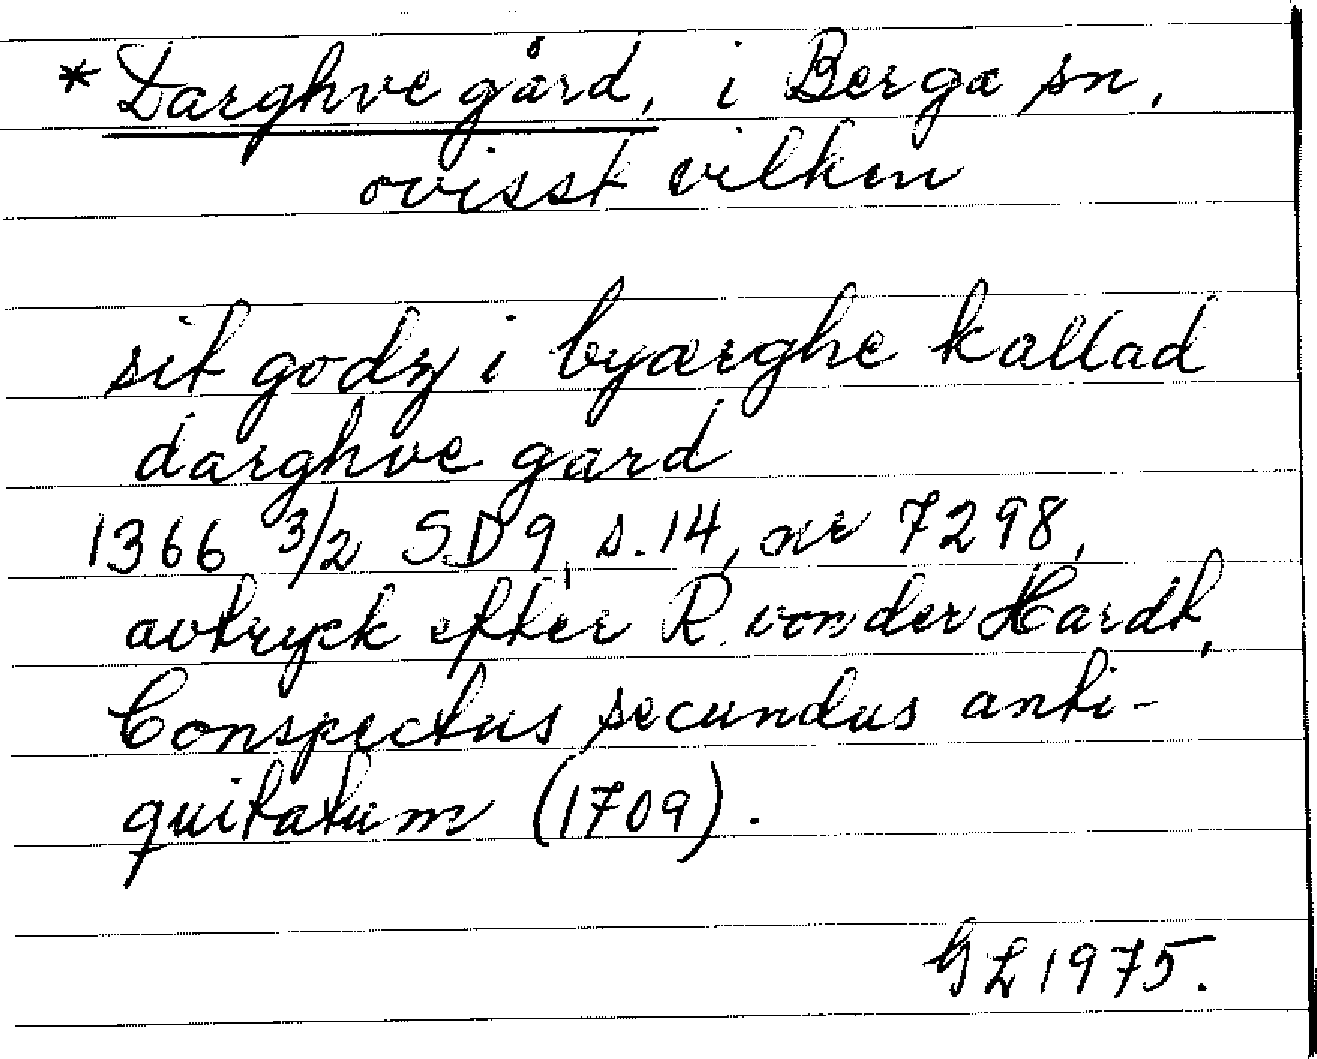 *Darghve gård, i Berga sn,
ovisst vilken
sit godz i byærghe kallad
darghve gard
1366 3/2 SD 9, s. 14, nr 7298,
avtryck efter R. von der Hardt,
Conspectus secundus anti-
quitatum (1709).
GL 1975.